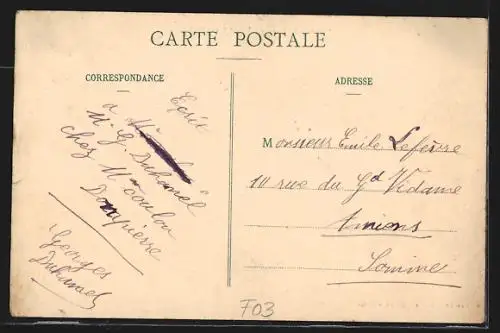 CARTE POSTALE
CORRESPONDANCE
ADRESSE
Ecrir
à M
Mr G. Duhamel
chez Mr Coulon
Dompierre
Georges
Duhamel
Monsieur Emile Lefèvre
10 rue du Gd Vidame
Amiens
Somme
F03